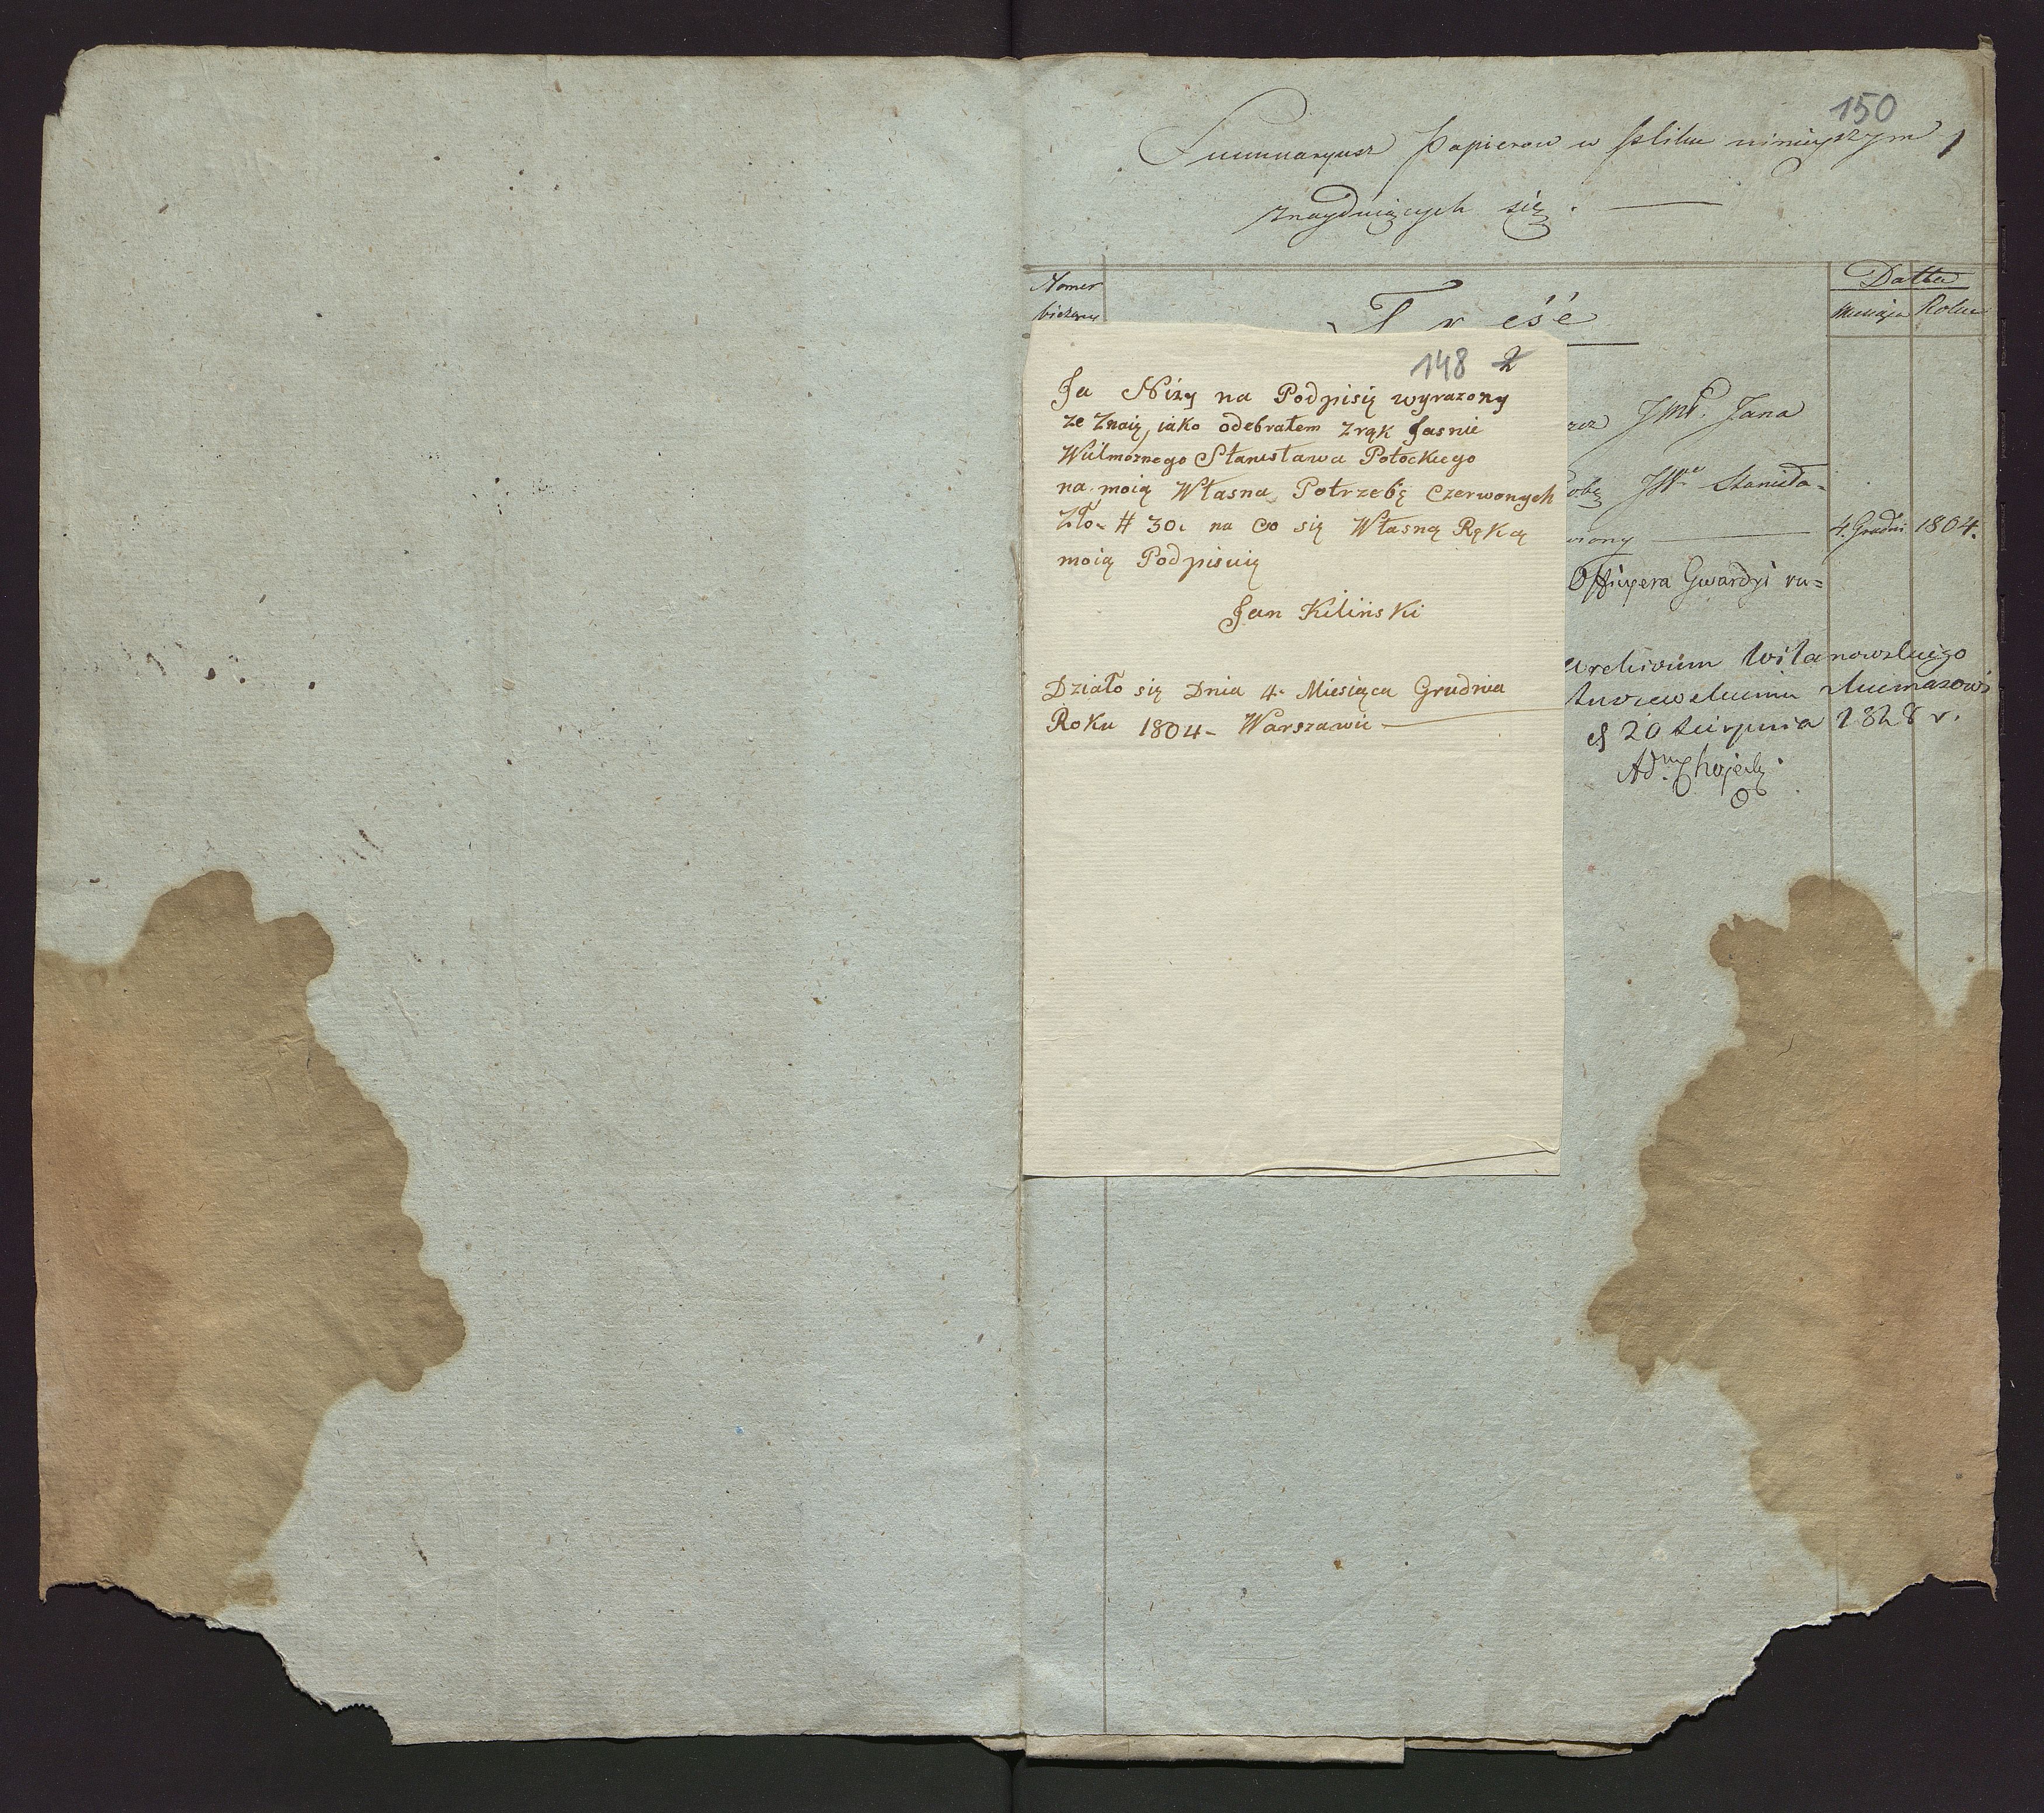 150
Summaryusz Papierow w Pliku ninieyszym
znayduiących się.
Nomer
bieżący
Treść
Datta
Miesiąca Roku
148 2
Ja Niży na Podpisię wyrazony
ze Znaię, iako odebrałem z rąk Jasnie
Wielmoznego Stanisława Potockiego
na moią Własną Potrzebę Czerwonych
Zło. # 30. na co się Własną Ręką
moią Podpisuię
Jan Kiliński
Działo się Dnia 4. Miesiąca Grudnia
Roku 1804 - Warszawie
rzez JPP. Jana
sobę JWo Stanisła=
wiony 4. Grudni 1804.
Officyera Gwardyi ru=
Archivum Wilanowskiego
d 20 Sierpnia 1828 r.